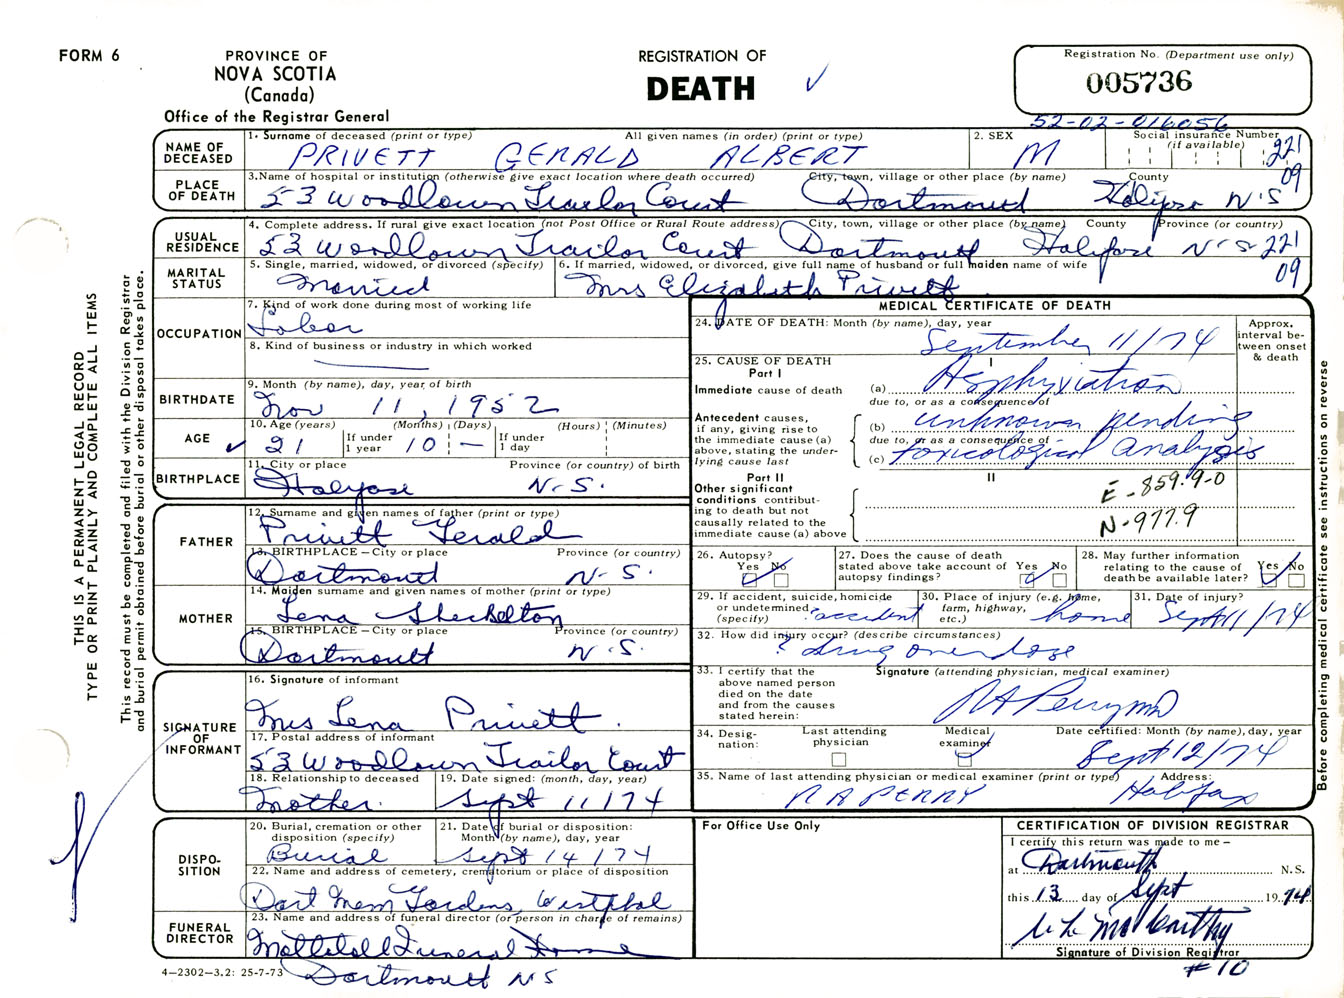 FORM 6
PROVINCE OF
NOVA SCOTIA
(Canada)
Office of the Registrar General
REGISTRATION OF
DEATH
Registration No. (Department use only)
005736
52-02-016056
THIS IS A PERMANENT LEGAL RECORD
TYPE OR PRINT PLAINLY AND COMPLETE ALL ITEMS
This record must be completed and filed with the Division Registrar
and burial permit obtained before burial or other disposal takes place.
NAME OF DECEASED
1. Surname of deceased (print or type) All given names (in order) (print or type)
PRIVETT GERALD ALBERT
2. SEX
M
Social insurance Number (if available)
221
09
PLACE OF DEATH
3. Name of hospital or institution (otherwise give exact location where death occurred) City, town, village or other place (by name) County
53 Woodlown Trailor Court Dartmouth Halifax N'S
USUAL RESIDENCE
4. Complete address. If rural give exact location (not Post Office or Rural Route address) City, town, village or other place (by name) County Province (or country)
53 Woodlown Trailor Court Dartmouth Halifax N-S 221
09
MARITAL STATUS
5. Single, married, widowed, or divorced (specify)
Married
6. If married, widowed, or divorced, give full name of husband or full maiden name of wife
Mrs Elizabeth Privett
OCCUPATION
7. Kind of work done during most of working life
Labor
8. Kind of business or industry in which worked
BIRTHDATE
9. Month (by name), day, year of birth
Nov 11, 1952
AGE
10. Age (years) (Months) (Days) (Hours) (Minutes)
21 If under 1 year 10 — If under 1 day
BIRTHPLACE
11. City or place Province (or country) of birth
Halifax N.S.
FATHER
12. Surname and given names of father (print or type)
Privett Gerald
13. BIRTHPLACE – City or place Province (or country)
Dartmouth N-S.
MOTHER
14. Maiden surname and given names of mother (print or type)
Lena Sheckelton
15. BIRTHPLACE – City or place Province (or country)
Dartmouth N.S.
SIGNATURE OF INFORMANT
16. Signature of informant
Mrs Lena Privett.
17. Postal address of informant
53 Woodlown Trailor Court
18. Relationship to deceased
Mother.
19. Date signed: (month, day, year)
Sept 11/74
DISPO-
SITION
20. Burial, cremation or other disposition (specify)
Burial
21. Date of burial or disposition: Month (by name), day, year
Sept 14/74
22. Name and address of cemetery, crematorium or place of disposition
Dart Mem Gardens, Westphal
FUNERAL DIRECTOR
23. Name and address of funeral director (or person in charge of remains)
Mattatall Funeral Home
Dartmouth NS
4–2302–3.2: 25-7-73
MEDICAL CERTIFICATE OF DEATH
24. DATE OF DEATH: Month (by name), day, year
September 11/74
Approx. interval between onset & death
25. CAUSE OF DEATH
Part I
I
Immediate cause of death
(a) Asphyxiation
due to, or as a consequence of
Antecedent causes, if any, giving rise to the immediate cause (a) above, stating the underlying cause last
(b) unknown pending
due to, or as a consequence of
(c) toxicological analysis
Part II
II
Other significant conditions contributing to death but not causally related to the immediate cause (a) above
E-859.9-0
N-977.9
26. Autopsy? Yes No
27. Does the cause of death stated above take account of autopsy findings? Yes No
28. May further information relating to the cause of death be available later? Yes No
29. If accident, suicide, homicide or undetermined (specify)
? accident
30. Place of injury (e.g. home, farm, highway, etc.)
home
31. Date of injury?
Sept 11/74
32. How did injury occur? (describe circumstances)
? drug overdose
33. I certify that the above named person died on the date and from the causes stated herein:
Signature (attending physician, medical examiner)
RA Perry MD
34. Designation:
Last attending physician
Medical examiner
Date certified: Month (by name), day, year
Sept 12/74
35. Name of last attending physician or medical examiner (print or type) Address:
R A PERRY Halifax
Before completing medical certificate see instructions on reverse
For Office Use Only
CERTIFICATION OF DIVISION REGISTRAR
I certify this return was made to me –
at Dartmouth N.S.
this 13 day of Sept 1974
Signature of Division Registrar
#10